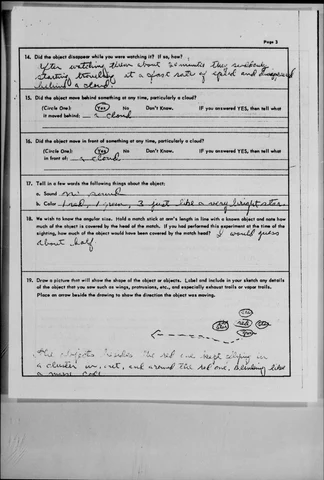 Page 3
14. Did the object disappear while you were watching it? If so, how?
After watching them about 5 minutes they suddenly
starting traveling at a fast rate of speed and disappeared
behind a cloud.
15. Did the object move behind something at any time, particularly a cloud?
(Circle One): Yes No Don't Know. IF you answered YES, then tell what
it moved behind: a cloud
16. Did the object move in front of something at any time, particularly a cloud?
(Circle One): Yes No Don't Know. IF you answered YES, then tell what
in front of: a cloud
17. Tell in a few words the following things about the object:
a. Sound no sound
b. Color 1 red, 1 green, 3 just like a very bright star.
18. We wish to know the angular size. Hold a match stick at arm's length in line with a known object and note how
much of the object is covered by the head of the match. If you had performed this experiment at the time of the
sighting, how much of the object would have been covered by the match head? I would guess
about half
19. Draw a picture that will show the shape of the object or objects. Label and include in your sketch any details
of the object that you saw such as wings, protrusions, etc., and especially exhaust trails or vapor trails.
Place an arrow beside the drawing to show the direction the object was moving.
red
the objects besides the red one kept in
a cluster in, out, and around the red one, blinking like
a